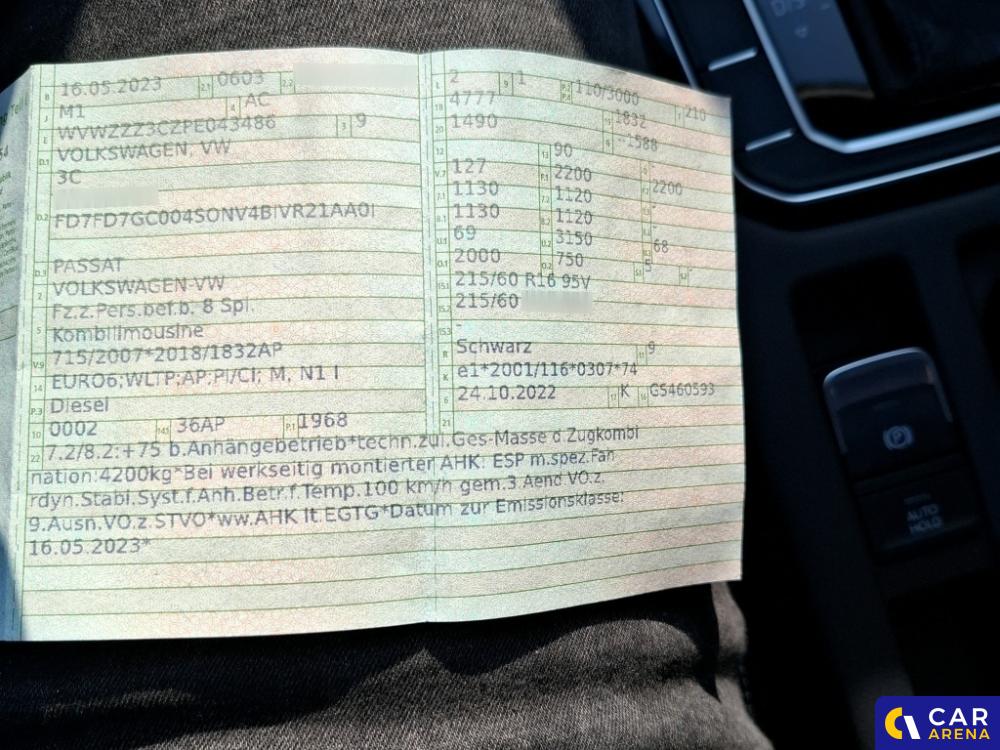 B 16.05.2023 2.1 0603 2.2
J M1 4 AC
E WVWZZZ3CZPE043486 3 9
D.1 VOLKSWAGEN, VW
3C
D.2 FD7FD7GC004SONV4BIVR21AA0I
D.3 PASSAT
2 VOLKSWAGEN-VW
Fz.z.Pers.bef.b. 8 Spl.
5 Kombilimousine
V.9 715/2007*2018/1832AP
14 EURO6;WLTP;AP;PI/CI; M, N1 I
P.3 Diesel
10 0002 14.1 36AP P.1 1968
L 2 9 1 P.2 P.4 110/3000 T 210
18 4777 19 1832
20 1490 G -1588
12 - 13 90 Q -
V.7 127 F.1 2200 F.2 2200
7.1 1130 7.2 1120 7.3 -
8.1 1130 8.2 1120 8.3 -
U.1 69 U.2 3150 U.3 68
O.1 2000 O.2 750 S.1 5 S.2 -
15.1 215/60 R16 95V
15.2 215/60
15.3 -
R Schwarz 11 9
K e1*2001/116*0307*74
6 24.10.2022 17 K 16 G5460593
21
22 7.2/8.2:+75 b.Anhängebetrieb*techn.zul.Ges-Masse d Zugkombi
nation:4200kg*Bei werkseitig montierter AHK: ESP m.spez.Fah
rdyn.Stabi.Syst.f.Anh.Betr.f.Temp.100 km/h gem.3 Aend VO.z.
9.Ausn.VO.z.STVO*ww.AHK lt.EGTG*Datum zur Emissionsklasse:
16.05.2023*
AUTO
HOLD
CAR
ARENA